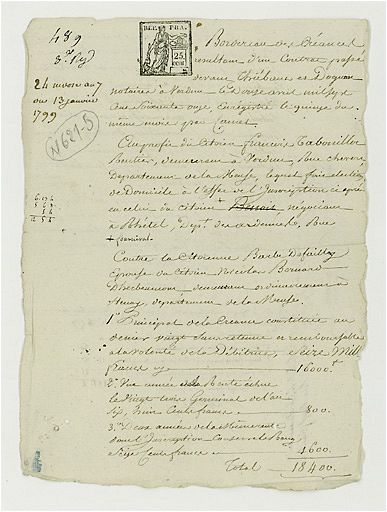 489
24 nivose an 7
ou 13 janvier
1799
N 621-5
REP. FRA.
25
CEN
Bordereau des Créances
résultant d'un Contrat passé
devant Thiébaut et
notaires à Verdun le Douze avril mil sept
Cent Soixante onze Enregistré le quinze des
même mois par
Au profit du Citoyen françois Tabouillot
Rentier, demeurant à Verdun, Rue
Département de la Meuse, lequel fait election
de Domicile à l'effet de l'Inscription ci après
en celui du citoyen Benoit, négociant
à Rhétel, Dept. des ardennes, Rue
Contre la Citoyenne Barbe
Epouse du Citoyen Nicolas Bernard
D'herbeumont, demeurant ordinairement à
Stenay, departement de la Meuse.
1° Principal de la Creance constituée au
denier vingt Sans retenue et remboursable
à la volonté de la Débitrice, Seize Mill
francs cy 16000.
2° Une année de Rente échue
le Vingt trois Germinal de l'an
Six, huit Cents francs 800.
3° Deux années de la même rente
dont l'Inscription Conserve le Rang
Seize Cents francs 1600
Total 18400.